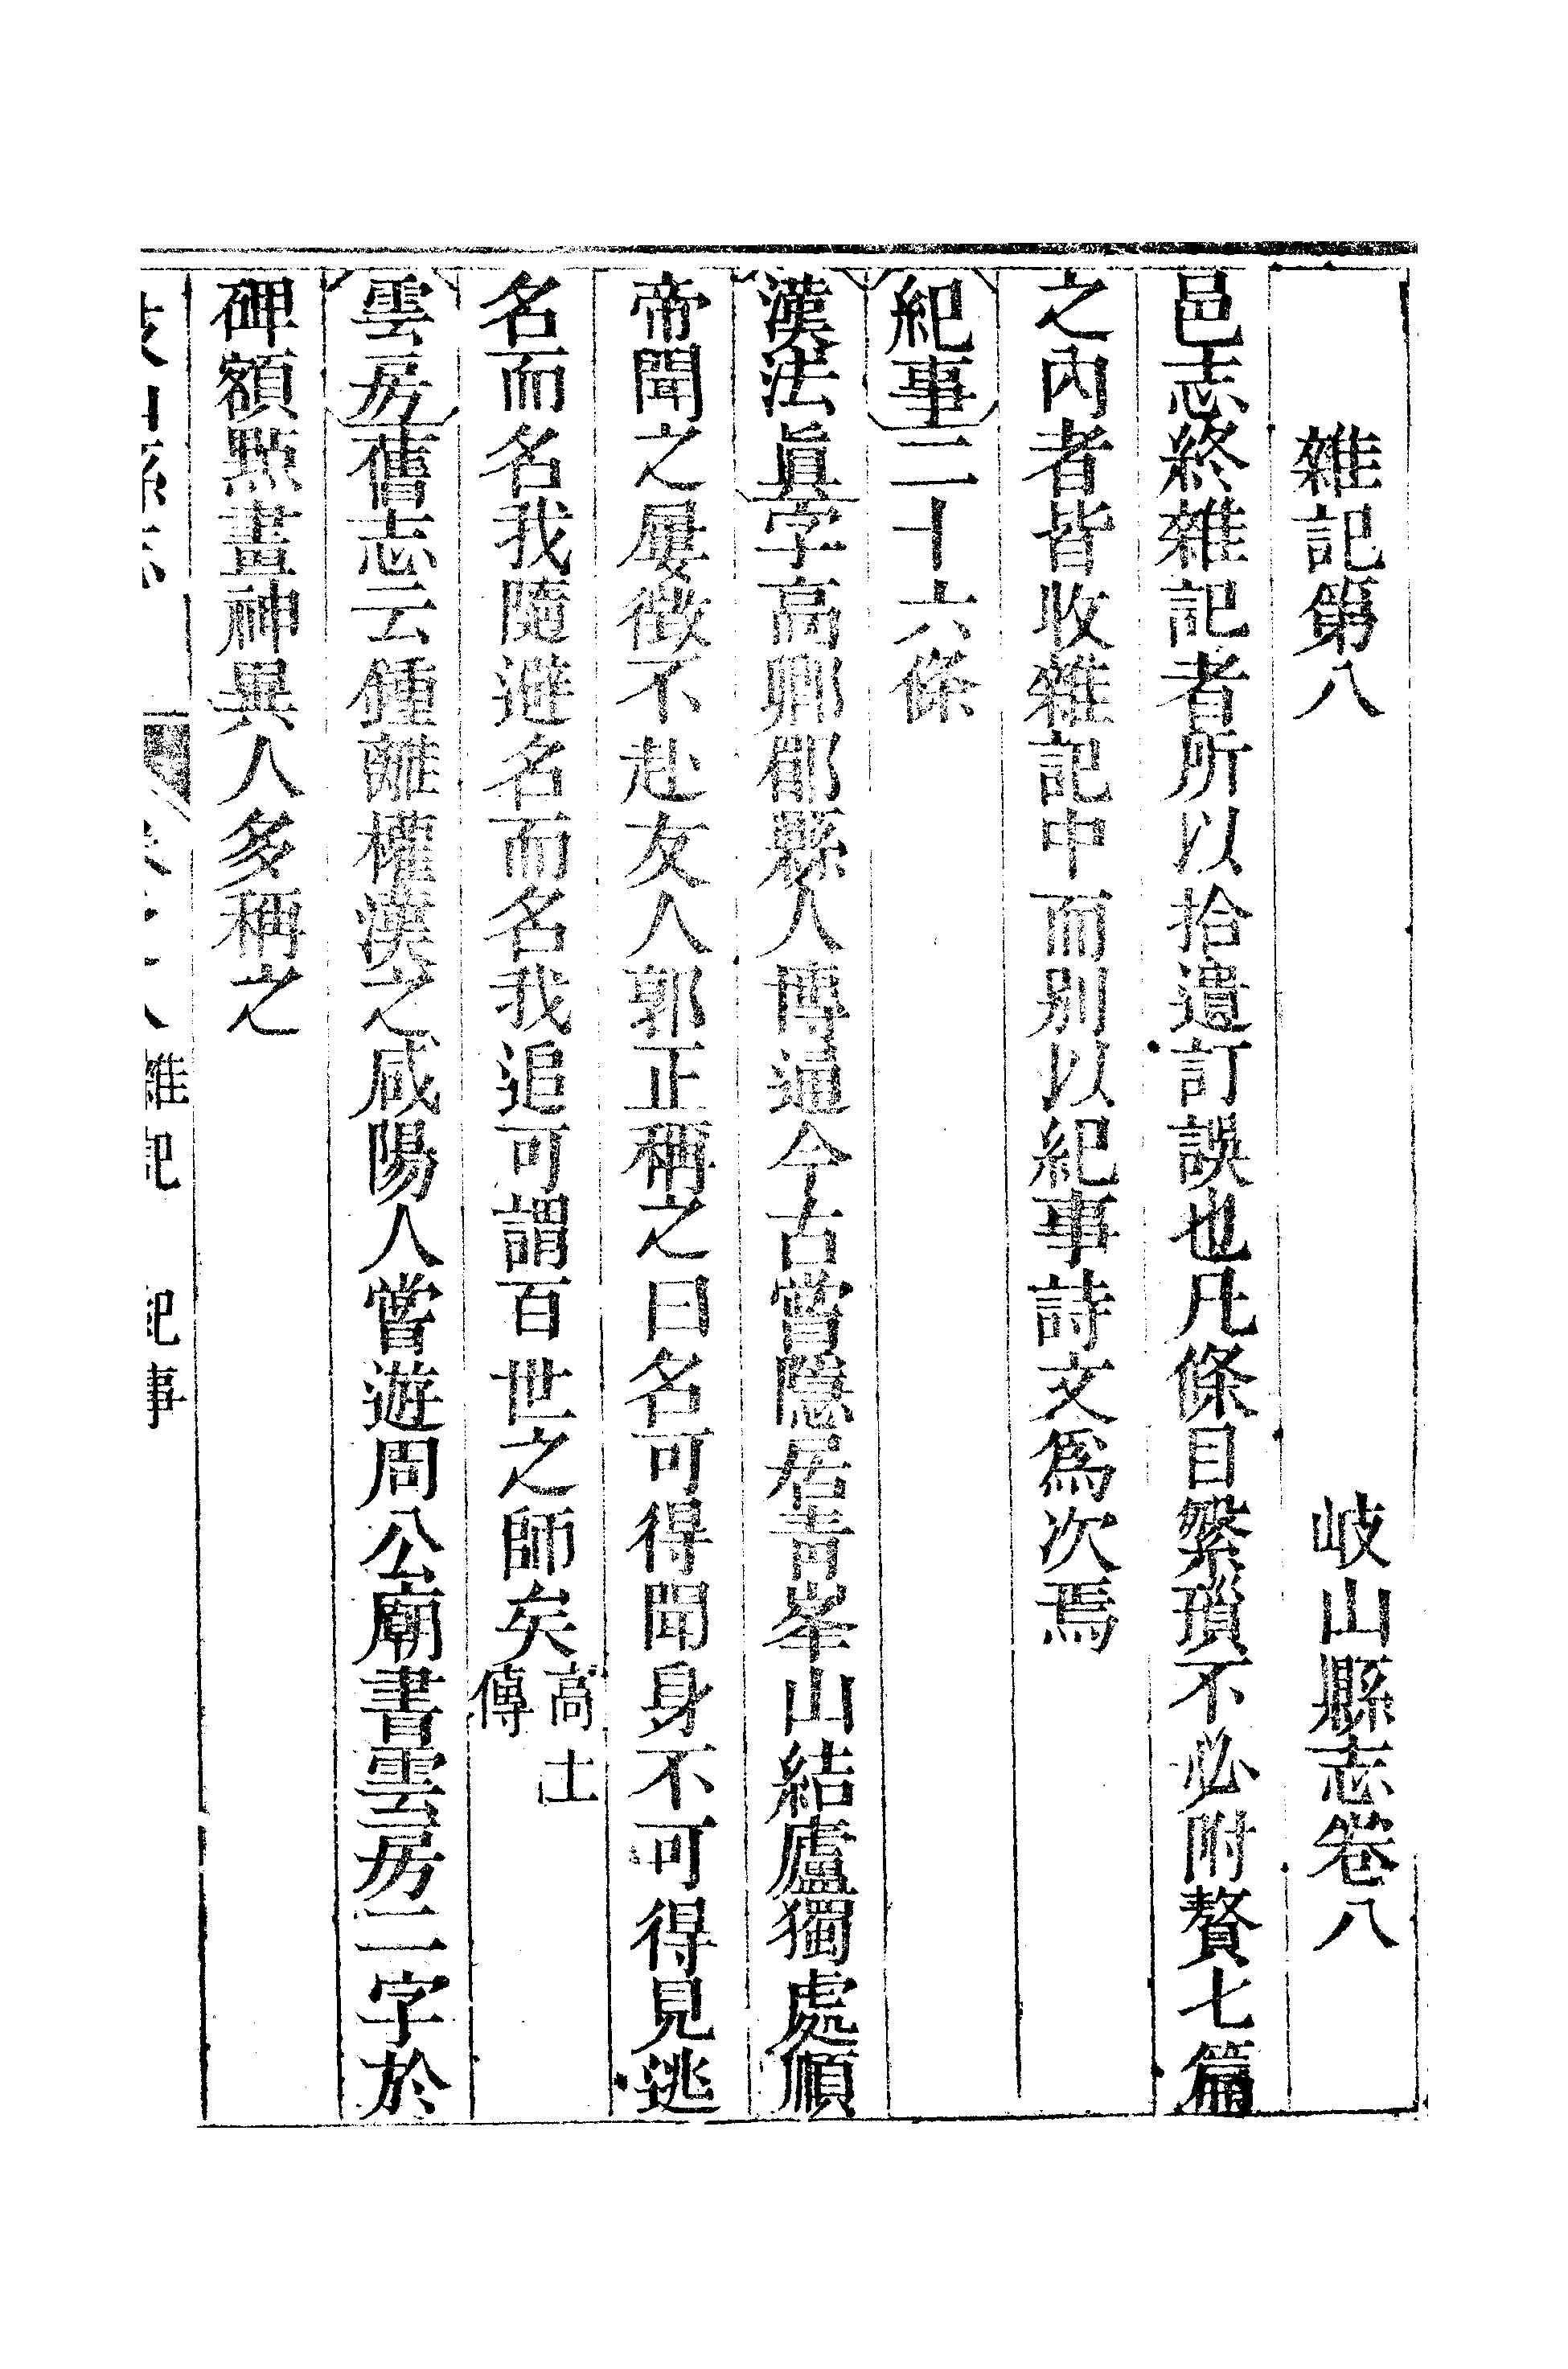 雜記第八　岐山縣志卷八
邑志終雜記者所以拾遺訂誤也凡條目繁瑣不必附贅七篇
之內者皆收雜記中而別以紀事詩文爲次焉
紀事二十六條
漢法眞字高卿郿縣人博通今古嘗隱居靑峯山結廬獨處順
帝聞之屢徵不赴友人郭正稱之曰名可得聞身不可得見逃
名而名我隨避名而名我追可謂百世之師矣高士傳
雲房舊志云鍾離權漢之咸陽人嘗遊周公廟書雲房二字於
碑額點畫神異人多稱之
雜記　紀事